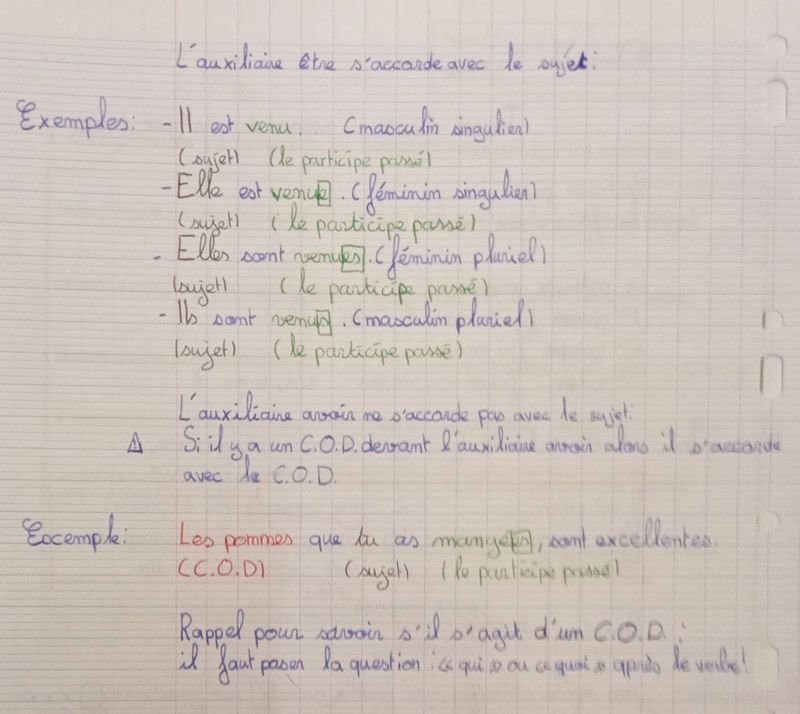 L'auxiliaire être s'accorde avec le sujet:
Exemples: - Il est venu. (masculin singulier)
(sujet) (le participe passé)
- Elle est venue. (féminin singulier)
(sujet) (le participe passé)
- Elles sont venues. (féminin pluriel)
(sujet) (le participe passé)
- Ils sont venus. (masculin pluriel)
(sujet) (le participe passé)
L'auxiliaire avoir ne s'accorde pas avec le sujet.
⚠ Si il y a un C.O.D. devant l'auxiliaire avoir alors il s'accorde
avec le C.O.D.
Exemple: Les pommes que tu as mangées, sont excellentes.
(C.O.D) (sujet) (le participe passé)
Rappel pour savoir s'il s'agit d'un C.O.D. :
il faut poser la question : « qui » ou « quoi » après le verbe!